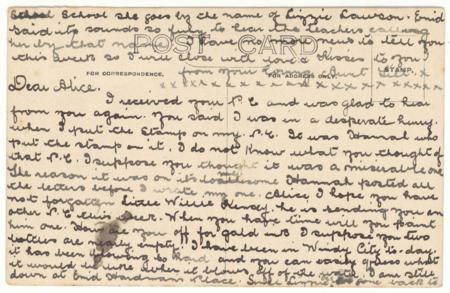 School School she goes by the name of Lizzie Lawson. Enid
said it sounds so funny to hear the teachers calling
her by that name. I have no more news to tell you
this week so I will close with love & kisses to you
from your
POST CARD
FOR CORRESPONDENCE. FOR ADDRESS ONLY. STAMP.
x x x x x x x x x x x x x x
Dear Alice.
I received your P.C and was glad to hear
from you again. You said I was in a desperate hurry.
when I put the stamp on my P.C. It was Hannah who
put the stamp on it. I do not know what you thought of
that P.C. I suppose you thought it was a miserable one
The reason it was on its Hannah posted all
the letters before I wrote mine. Alice, I hope you have
not forgotten Little Willie he is sending you an
other P.C this week. When you have time will you paint
him one. How are you off for gold ink I suppose you two
bottles are nearly empty. I have been in Windy City to-day.
it has been blowing so hard and you can easily guess what
it would be like when it blows off of the I am still
down at Enid Hardmans Place. gone back to